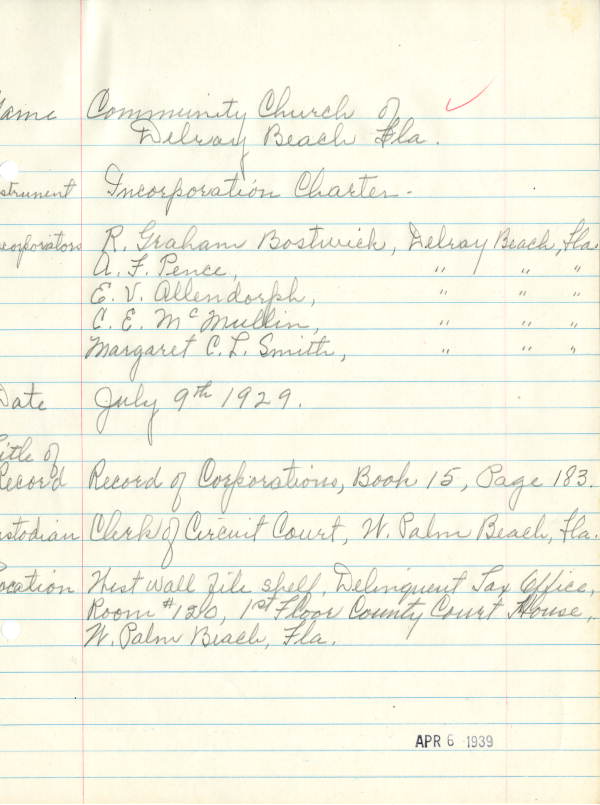 ame Community Church of
Delray Beach Fla.
strument Incorporation Charter.
corporators R. Graham Bostwick, Delray Beach, Fla.
A. F. Pence, " " "
E. V. Allendorph, " " "
C. E. McMullin, " " "
Margaret C. L. Smith, " " "
Date July 9th 1929.
itle of
Record Record of Corporations, Book 15, Page 183.
stodian Clerk of Circuit Court, W. Palm Beach, Fla.
ocation West wall file shelf, Delinquent Tax Office,
Room #120, 1st Floor County Court House,
W. Palm Beach, Fla.
APR 6 1939